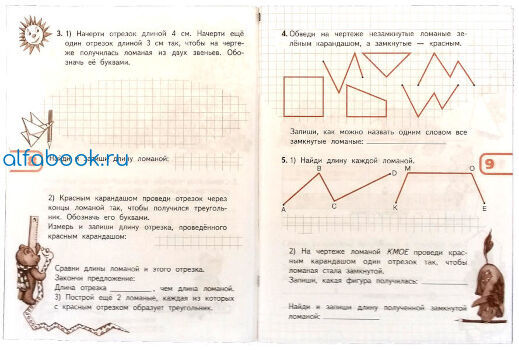 3. 1) Начерти отрезок длиной 4 см. Начерти ещё
один отрезок длиной 3 см так, чтобы на черте-
же получилась ломаная из двух звеньев. Обо-
значь её буквами.
alfabook.ru
Найди и запиши длину ломаной:
2) Красным карандашом проведи отрезок через
концы ломаной так, чтобы получился треуголь-
ник. Обозначь его буквами.
Измерь и запиши длину отрезка, проведённого
красным карандашом:
Сравни длины ломаной и этого отрезка.
Закончи предложение:
Длина отрезка , чем длина ломаной.
3) Построй ещё 2 ломаные, каждая из которых
с красным отрезком образует треугольник.
4. Обведи на чертеже незамкнутые ломаные зе-
лёным карандашом, а замкнутые — красным.
Запиши, как можно назвать одним словом все
замкнутые ломаные:
5. 1) Найди длину каждой ломаной.
9
B D M O
A C K E
2) На чертеже ломаной КМОЕ проведи крас-
ным карандашом один отрезок так, чтобы
ломаная стала замкнутой.
Запиши, какая фигура получилась:
Найди и запиши длину полученной замкнутой
ломаной: